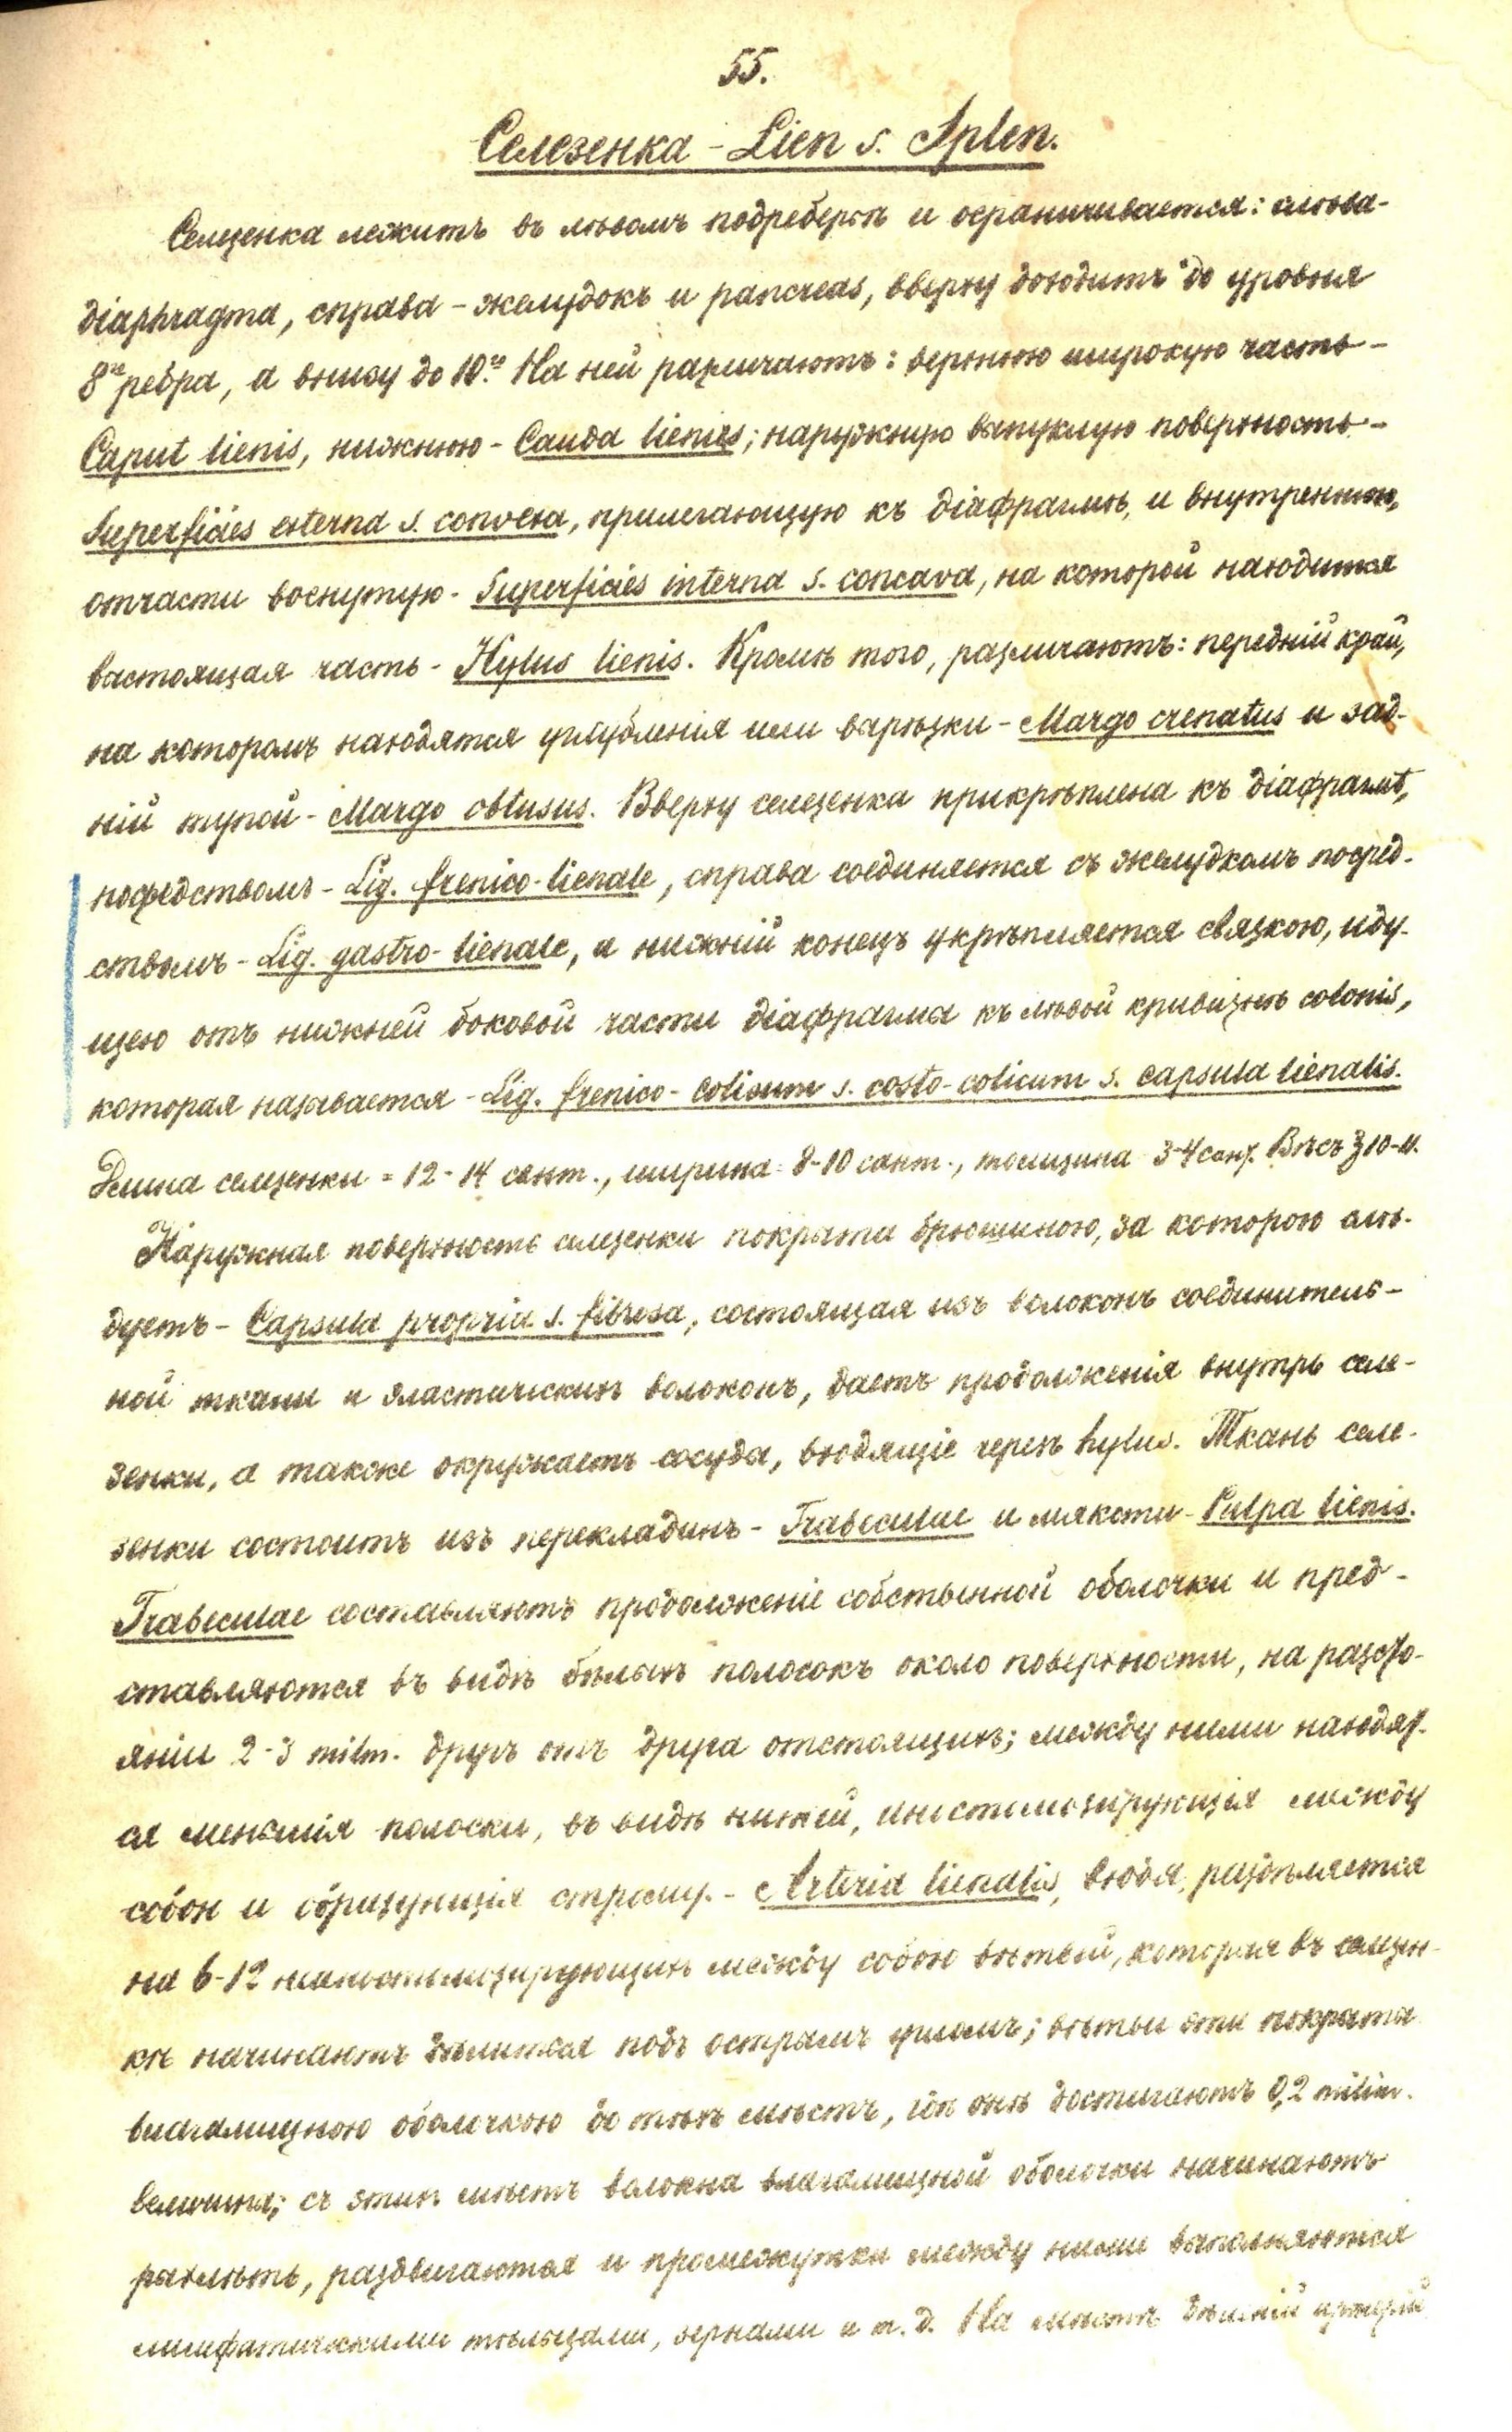 55.
Селезенка - Lien s. Splen.
Селезенка лежитъ въ лѣвомъ подреберьѣ и ограничивается: слѣва-
diaphragma, справа - желудокъ и pancreas, вверху доходитъ до уровня
8го ребра, а внизу до 10го. На ней различаютъ: верхнюю широкую часть -
Caput lienis, нижнюю - Cauda lienis; наружную выпуклую поверхность -
Superficies externa s. convexa, прилегающую къ діафрагмѣ, и внутреннюю,
отчасти вогнутую - Superficies interna s. concava, на которой находится
выстоящая часть - Hylus lienis. Кромѣ того, различаютъ: передній край,
на которомъ находятся углубленія или вырѣзки - Margo crenatus и зад-
ній тупой - Margo obtusus. Вверху селезенка прикрѣплена къ діафрагмѣ,
посредствомъ - Lig. frenico-lienale, справа соединяется съ желудкомъ посред-
ствомъ - Lig. gastro-lienale, а нижній конецъ укрѣпляется связкою, иду-
щею отъ нижней боковой части діафрагмы къ лѣвой кривизнѣ colonis,
которая называется - Lig. frenico-colicum s. costo-colicum s. capsula lienalis.
Длина селезенки = 12-14 сант., ширина = 8-10 сант., толщина 3-4 сант. Вѣсъ ℥ 10-11.
Наружная поверхность селезенки покрыта брюшиною, за которою слѣ-
дуетъ - Capsula propria s. fibrosa, состоящая изъ волоконъ соединитель-
ной ткани и эластическихъ волоконъ, даетъ продолженія внутрь селе-
зенки, а также окружаетъ сосуды, входящіе черезъ hylus. Ткань селе-
зенки состоитъ изъ перекладинъ - Trabeculae и мякоти - Pulpa lienis.
Trabeculae составляютъ продолженіе собственной оболочки и пред-
ставляются въ видѣ бѣлыхъ полосокъ около поверхности, на разсто-
яніи 2-3 milm. другъ отъ друга отстоящихъ; между ними находят-
ся меньшія полоски, въ видѣ нитей, анастомозирующія между
собою и образующія строму. - Arteria lienalis, входя, раздѣляется
на 6-12 неанастомозирующихъ между собою вѣтвей, которыя въ селезен-
кѣ начинаютъ дѣлиться подъ острымъ угломъ; вѣтви эти покрыты
влагалищною оболочкою до тѣхъ мѣстъ, гдѣ онѣ достигаютъ 0,2 milim.
величины; съ этихъ мѣстъ волокна влагалищной оболочки начинаютъ
рыхлѣть, раздвигаются и промежутки между ними выполняются
лимфатическими тѣльцами, зернами и т. д. На мѣстѣ дѣленій артерій